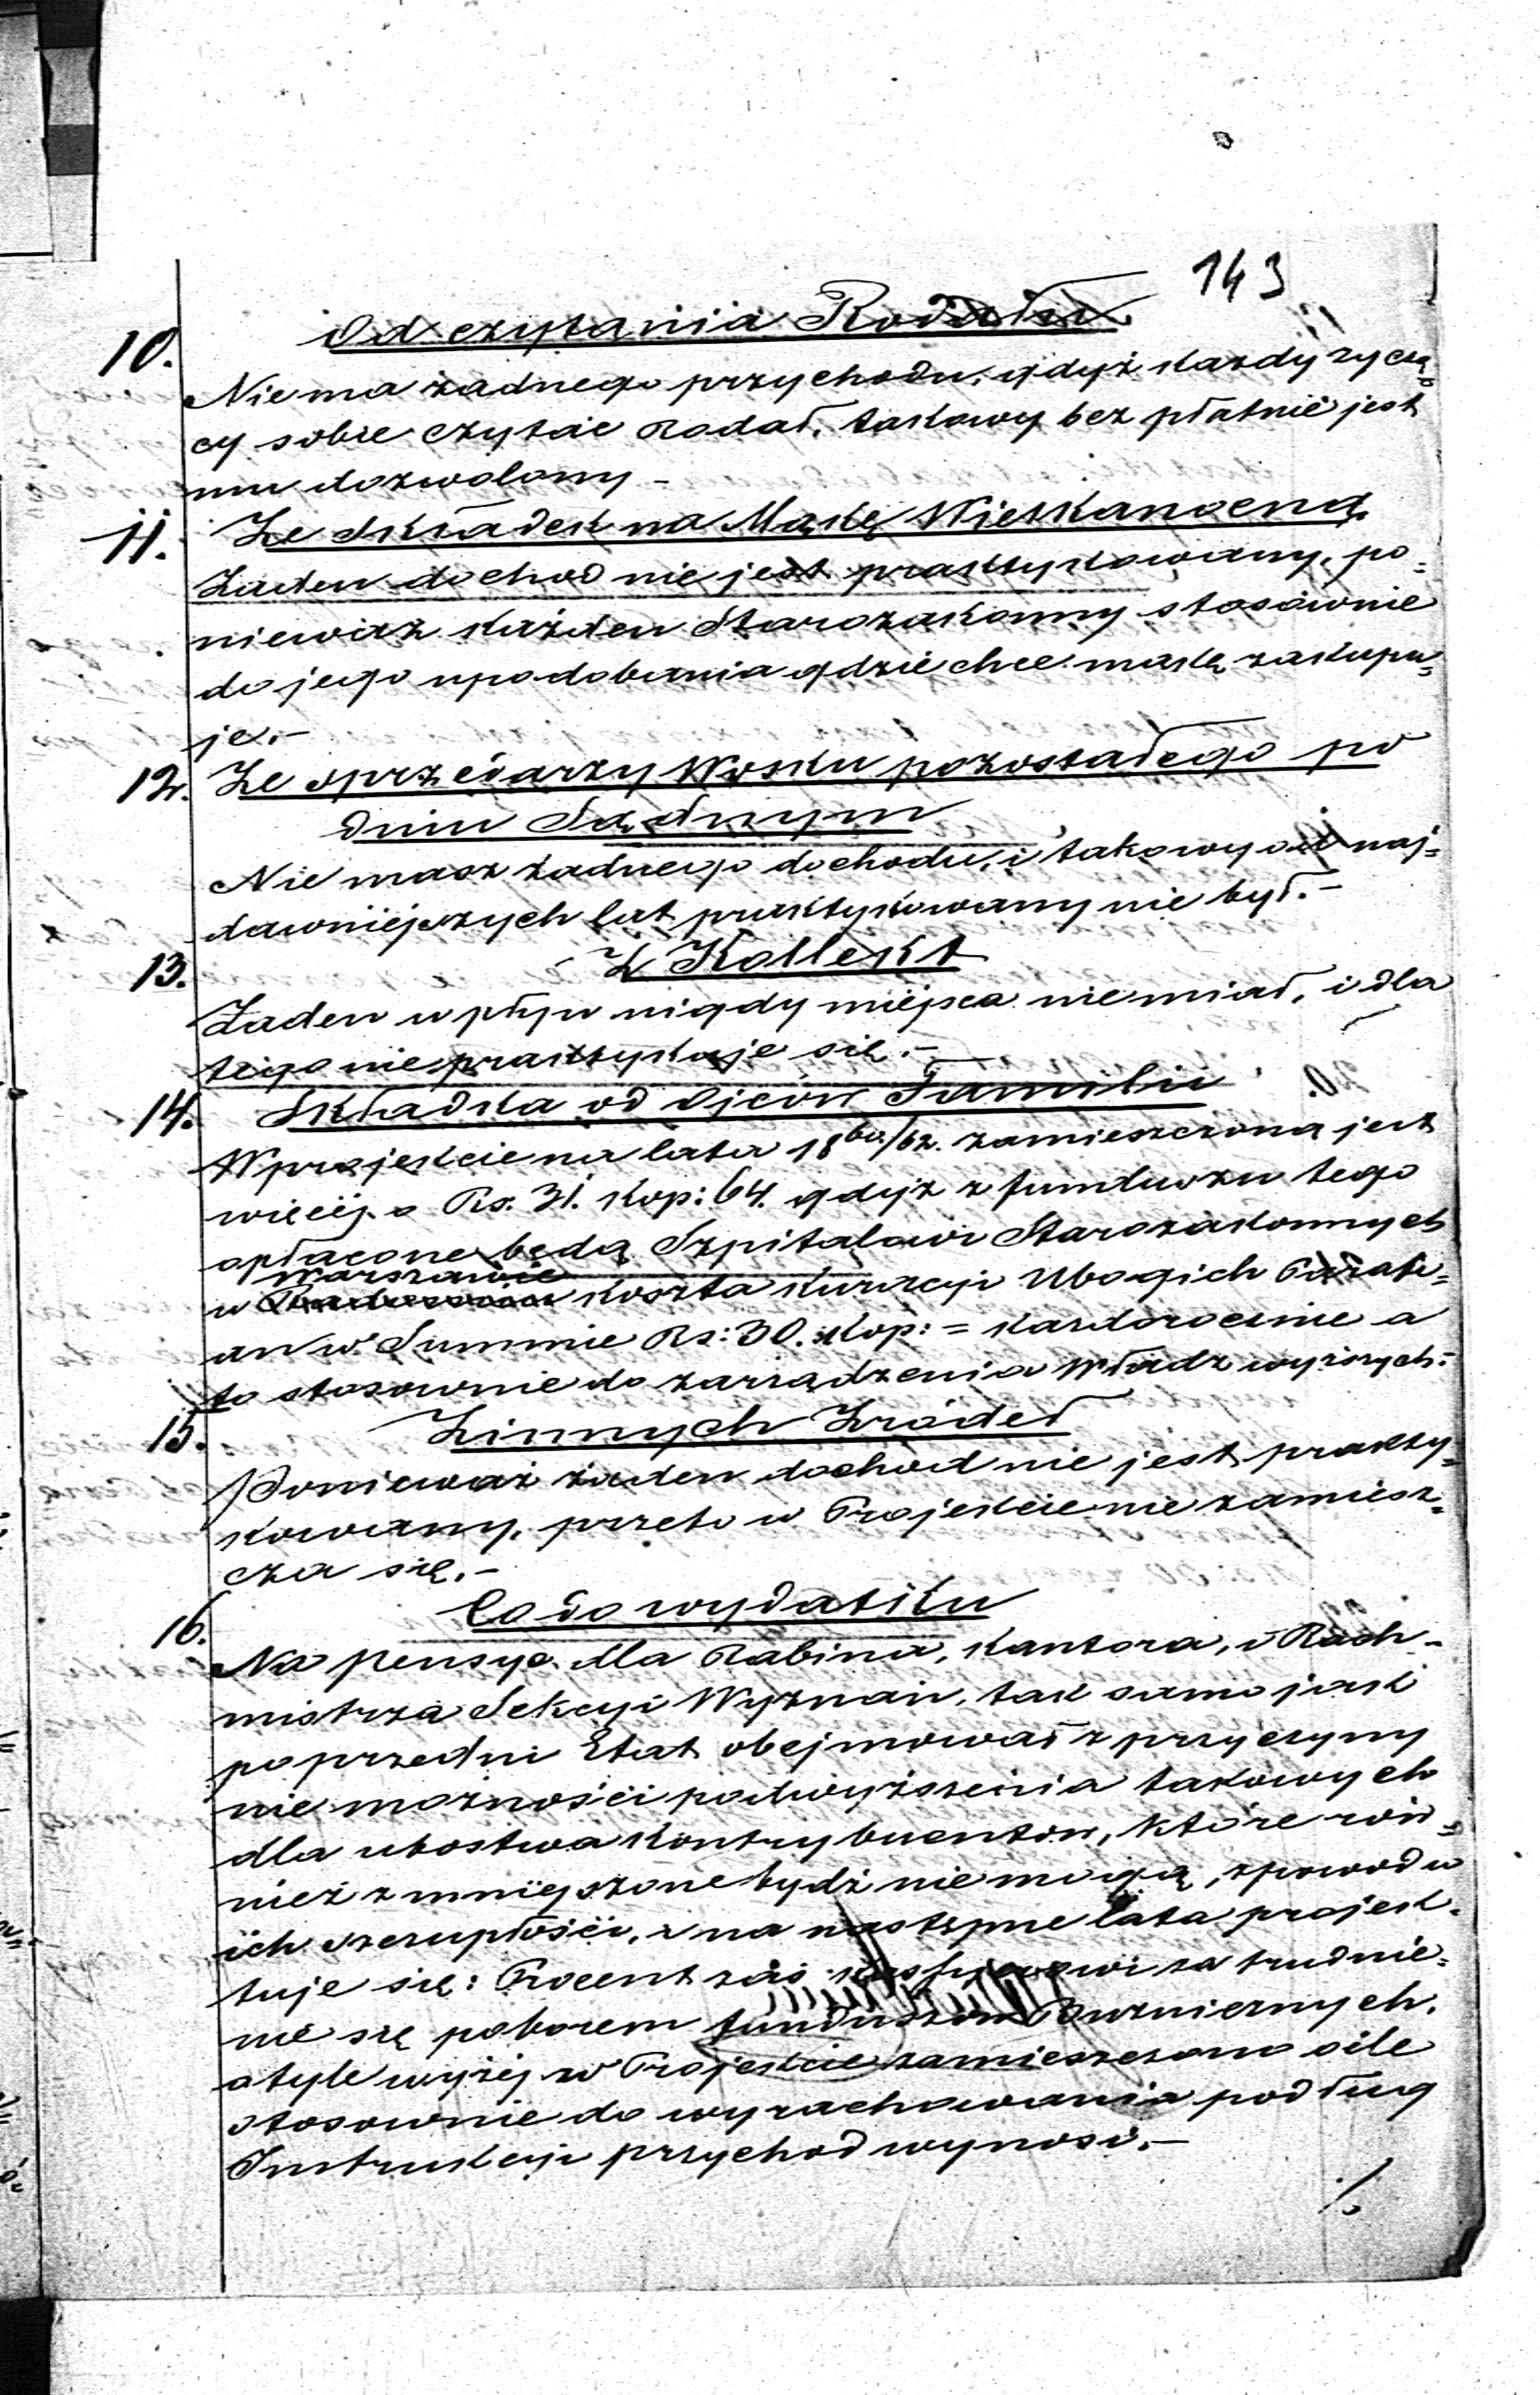 143
10. Od czytania Rodału
Nie ma żadnego przychodu, gdyż każdy życzą
cy sobie czytać Rodał, takowy bez płatnie jest
mu dozwolony –
11. Ze Składek na Mąkę Wielkanocną.
Żaden dochod nie jest praktykowany, po=
nieważ każden Starozakonny stosównie
do jego upodobania gdzie chce mąkę zakupu=
je. –
12. Ze sprzedarzy Wosku pozostałego po
dniu Sądnym
Nie masz żadnego dochodu, i takowy od naj=
dawniéjszych lat praktykowany nie był. –
13. Z Kollekt
Żaden wpływ nigdy miéjsca nie miał, i dla
tego nie praktykuje się. –
14. Składka od Ojców Familii
W projekcie na lata 1860/62. zamieszczona jest
więcéj o Rs. 31. Kop: 64. gdyż z funduszu tego
opłacone będą Szpitalowi Starozakonnych
w Warszawie koszta kuracji Ubogich Parafi=
an w Summie Rs: 30. Kop: = każdorocznie a
to stosownie do zarządzenia Władz wyższych. –
15. Z innych Zródeł
Ponieważ żaden dochod nie jest prakty=
kowany, przeto w Projekcie nie zamiesz=
cza się. –
16. Co do wydatku
Na pensye dla Rabina, Kantora, i Rach=
mistrza Sekcyi Wyznań, tak samo jak
poprzedni Etat obejmował z przyczyny
nie możności podwyższenia takowych
dla ubostwa Kontrybuentów, które rów=
nież zmniejszone bydź nie mogą, z powodu
ich szczupłości, na następne lata projek=
tuje się: Procent zaś za trudnie=
nie się poborem funduszow Bużnicznych,
o tyle wyżéj w Projekcie zamieszczono o ile
stosownie do wyrachowania podług
Instrukcji przychod wynosi. –
./.